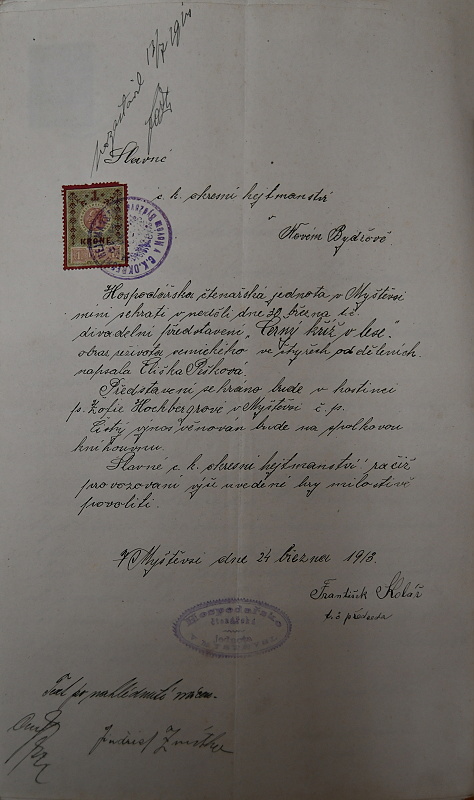 Slavné
c. k. okresní hejtmanství
v
Novém Bydžově
1
KRONE
Hospodářsko čtenářská jednota v Myštěvsi
míní sehrati v neděli dne 30. března t.r.
divadelní představení „Černý kříž v lese"
obraz ze života vesnického ve čtyřech odděleních.
napsala Eliška Pešková.
Představení sehráno bude v hostinci
p. Žofie Hochbergrové v Myštěvsi č. p.
Čistý výnos věnován bude na spolkovou
knihovnu.
Slavné c. k. okresní hejtmanství račiž
provozování výše uvedené hry milostivě
povoliti.
V Myštěvsi dne 24 března 1913.
František Kolář
t. č. předseda
Hospodářsko
čtenářská
jednota
v Myštěvsi